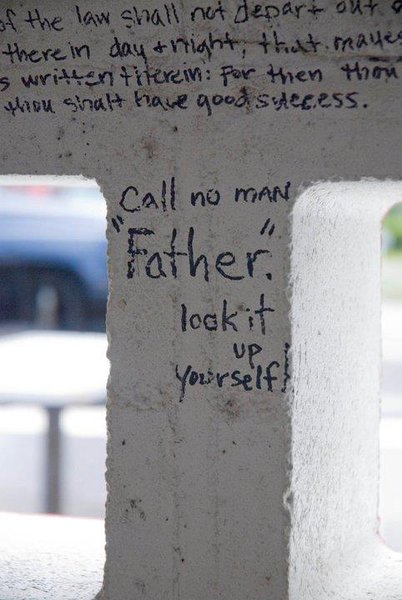 of the law shall not depart out
therein day + night, that mayes
s written therein: For then thou
thou shalt have good success.
Call no man
"Father."
look it
up
yourself!